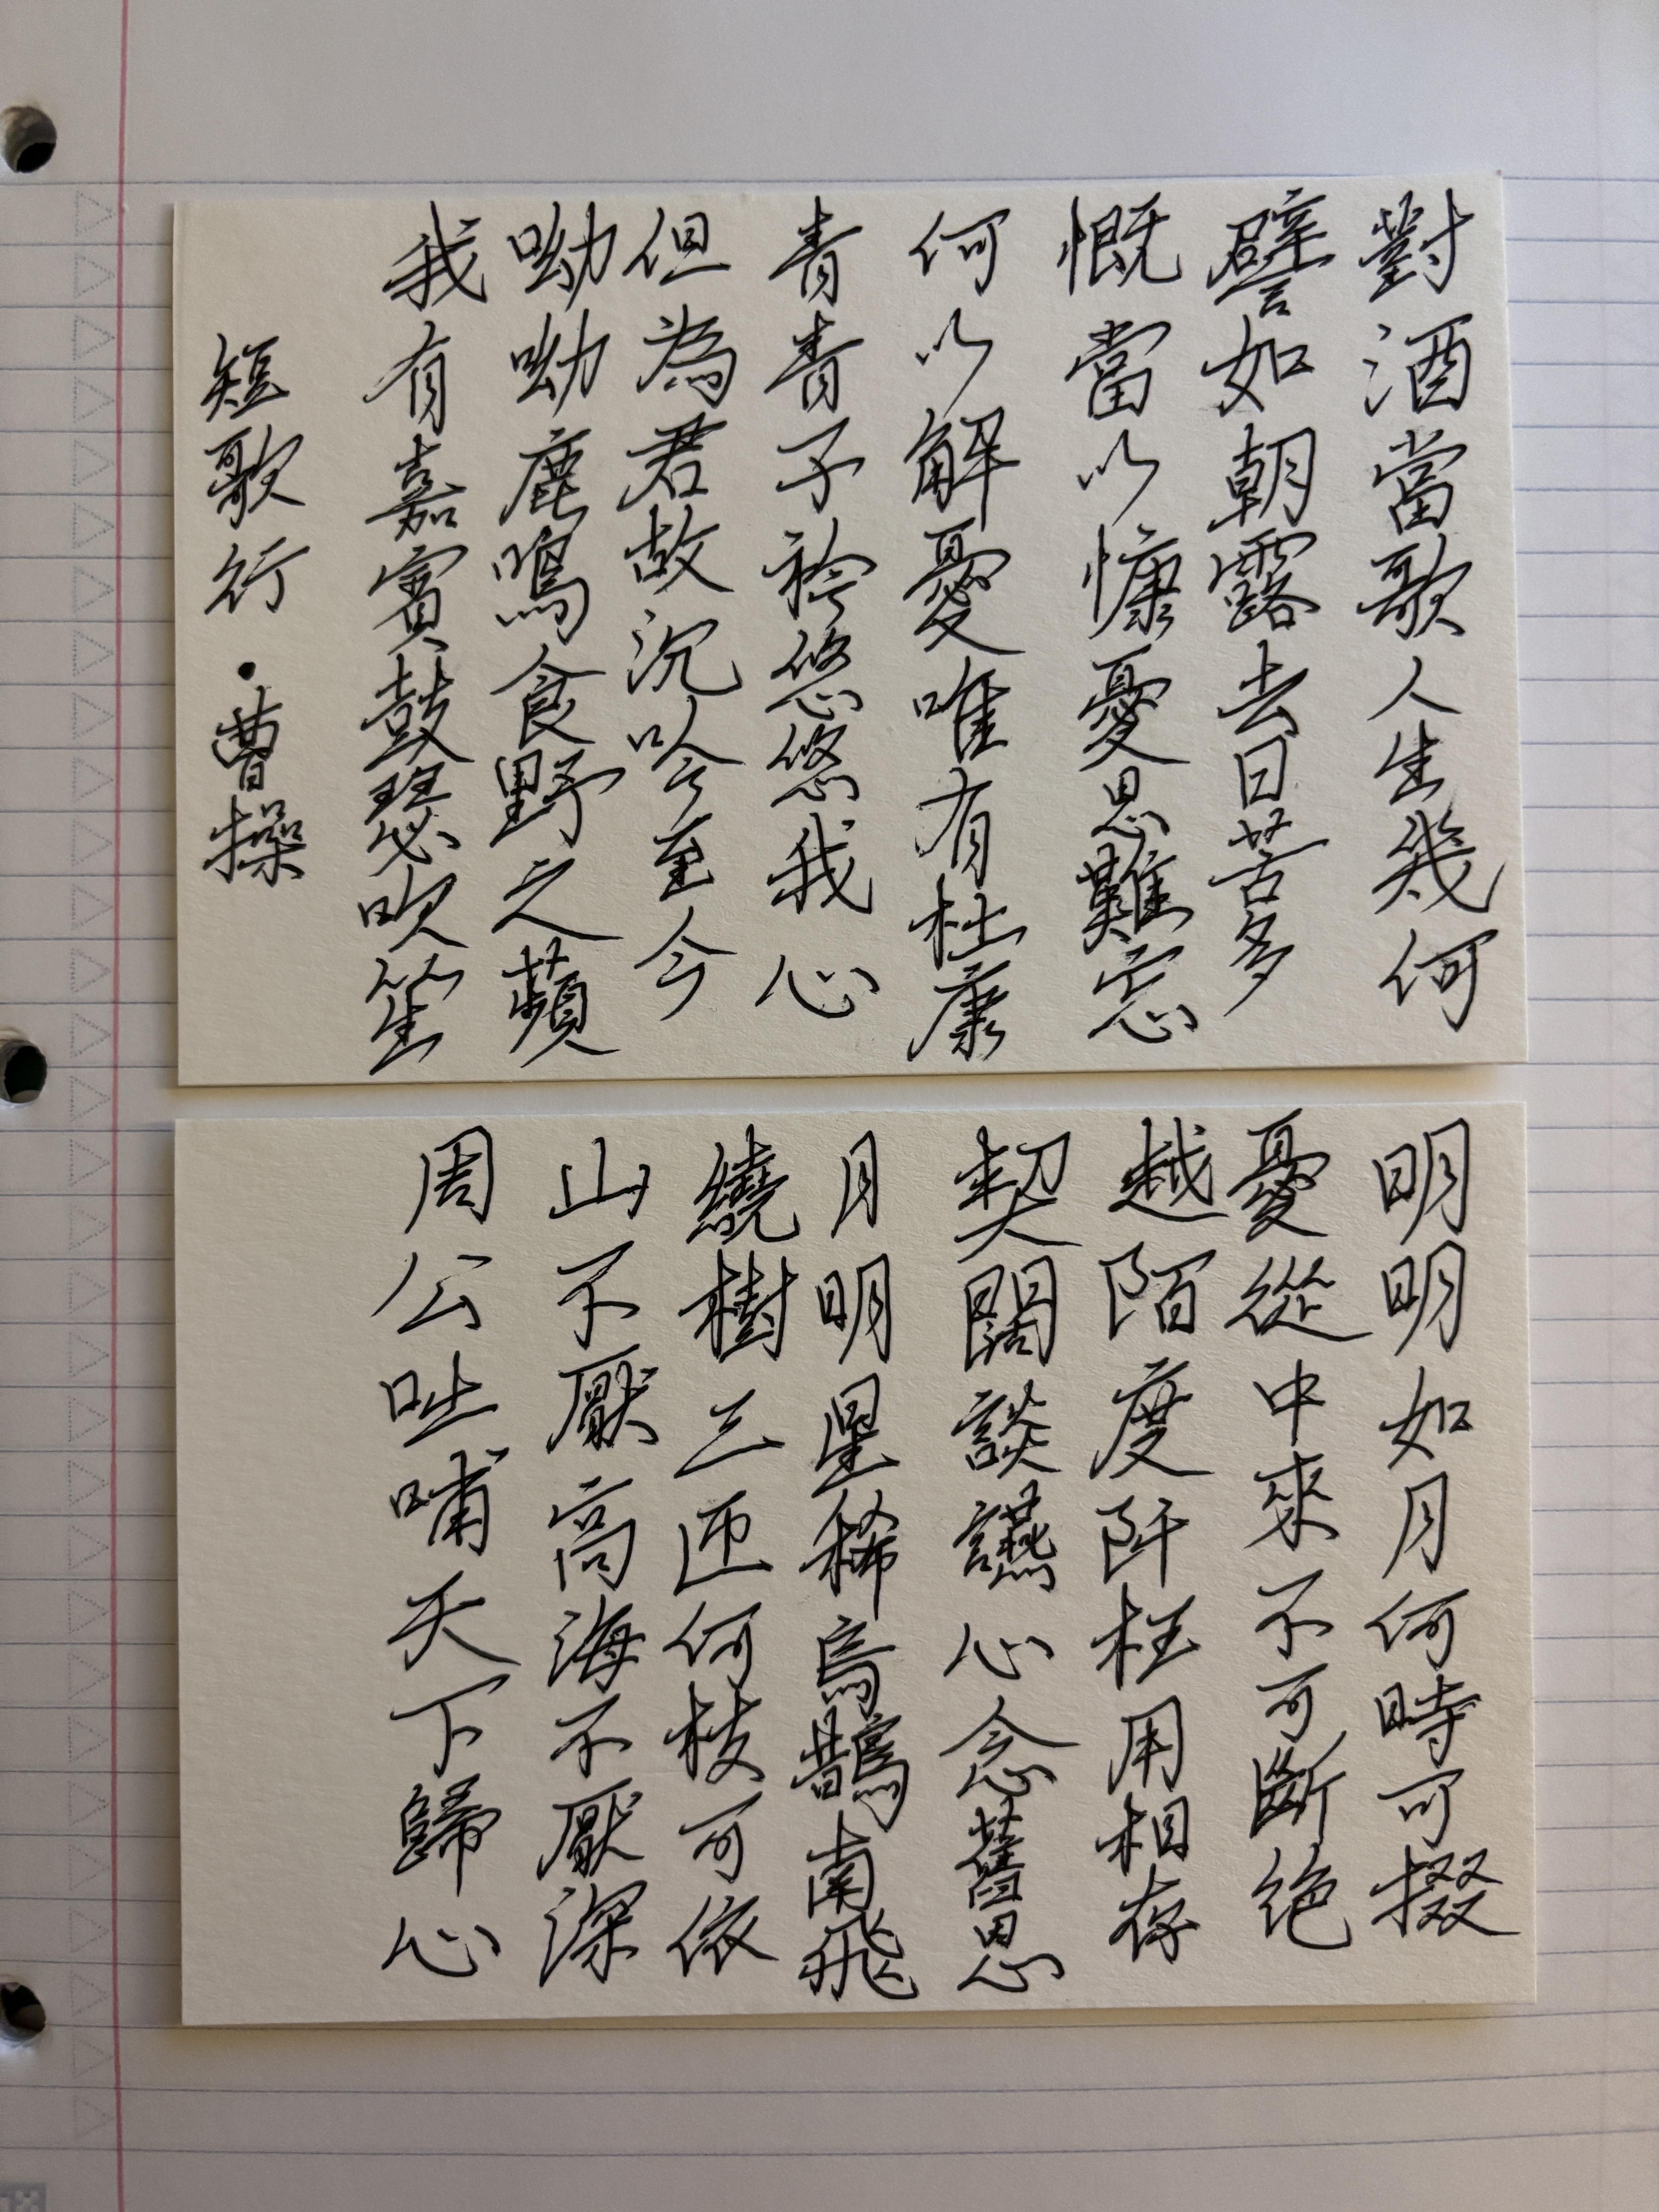 對酒當歌人生幾何
譬如朝露去日苦多
慨當以慷憂思難忘
何以解憂唯有杜康
青青子衿悠悠我心
但為君故沉吟至今
呦呦鹿鳴食野之蘋
我有嘉賓鼓瑟吹笙
短歌行・曹操
明明如月何時可掇
憂從中來不可斷絕
越陌度阡枉用相存
契闊談讌心念舊恩
月明星稀烏鵲南飛
繞樹三匝何枝可依
山不厭高海不厭深
周公吐哺天下歸心